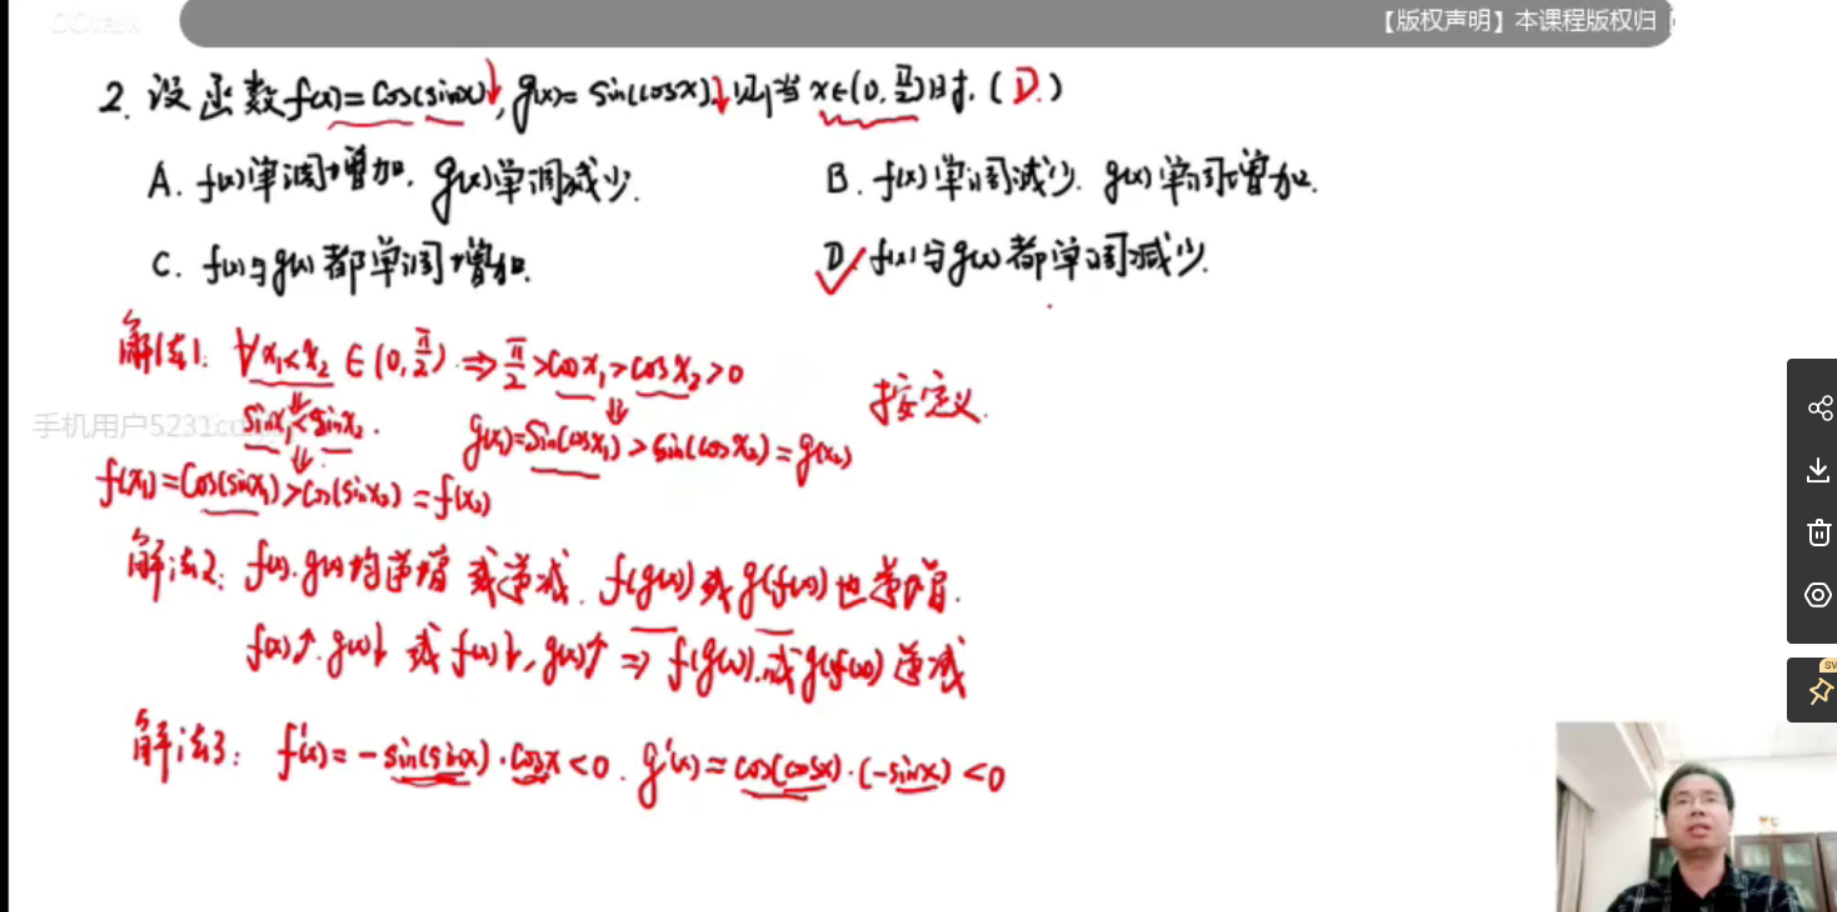 CCtalk
【版权声明】本课程版权归
2. 设函数f(x)=cos(sinx)↓, g(x)=sin(cosx)↓, 则当x∈(0, π/2)时, ( D. )
A. f(x)单调增加, g(x)单调减少.
B. f(x)单调减少. g(x)单调增加.
C. f(x)与g(x)都单调增加.
D. f(x)与g(x)都单调减少.
解法1: ∀x₁<x₂∈(0, π/2) ⇒ π/2>cosx₁>cosx₂>0
按定义.
手机用户5231
sinx₁<sinx₂.
g(x₁)=sin(cosx₁)>sin(cosx₂)=g(x₂)
f(x₁)=cos(sinx₁)>cos(sinx₂)=f(x₂)
解法2: f(x). g(x)均递增 或递减. f(g(x))或g(f(x))也递增.
f(x)↑. g(x)↓ 或 f(x)↓, g(x)↑ ⇒ f(g(x)). 或g(f(x))递减
解法3: f'(x)=-sin(sinx)·cosx<0. g'(x)=cos(cosx)·(-sinx)<0